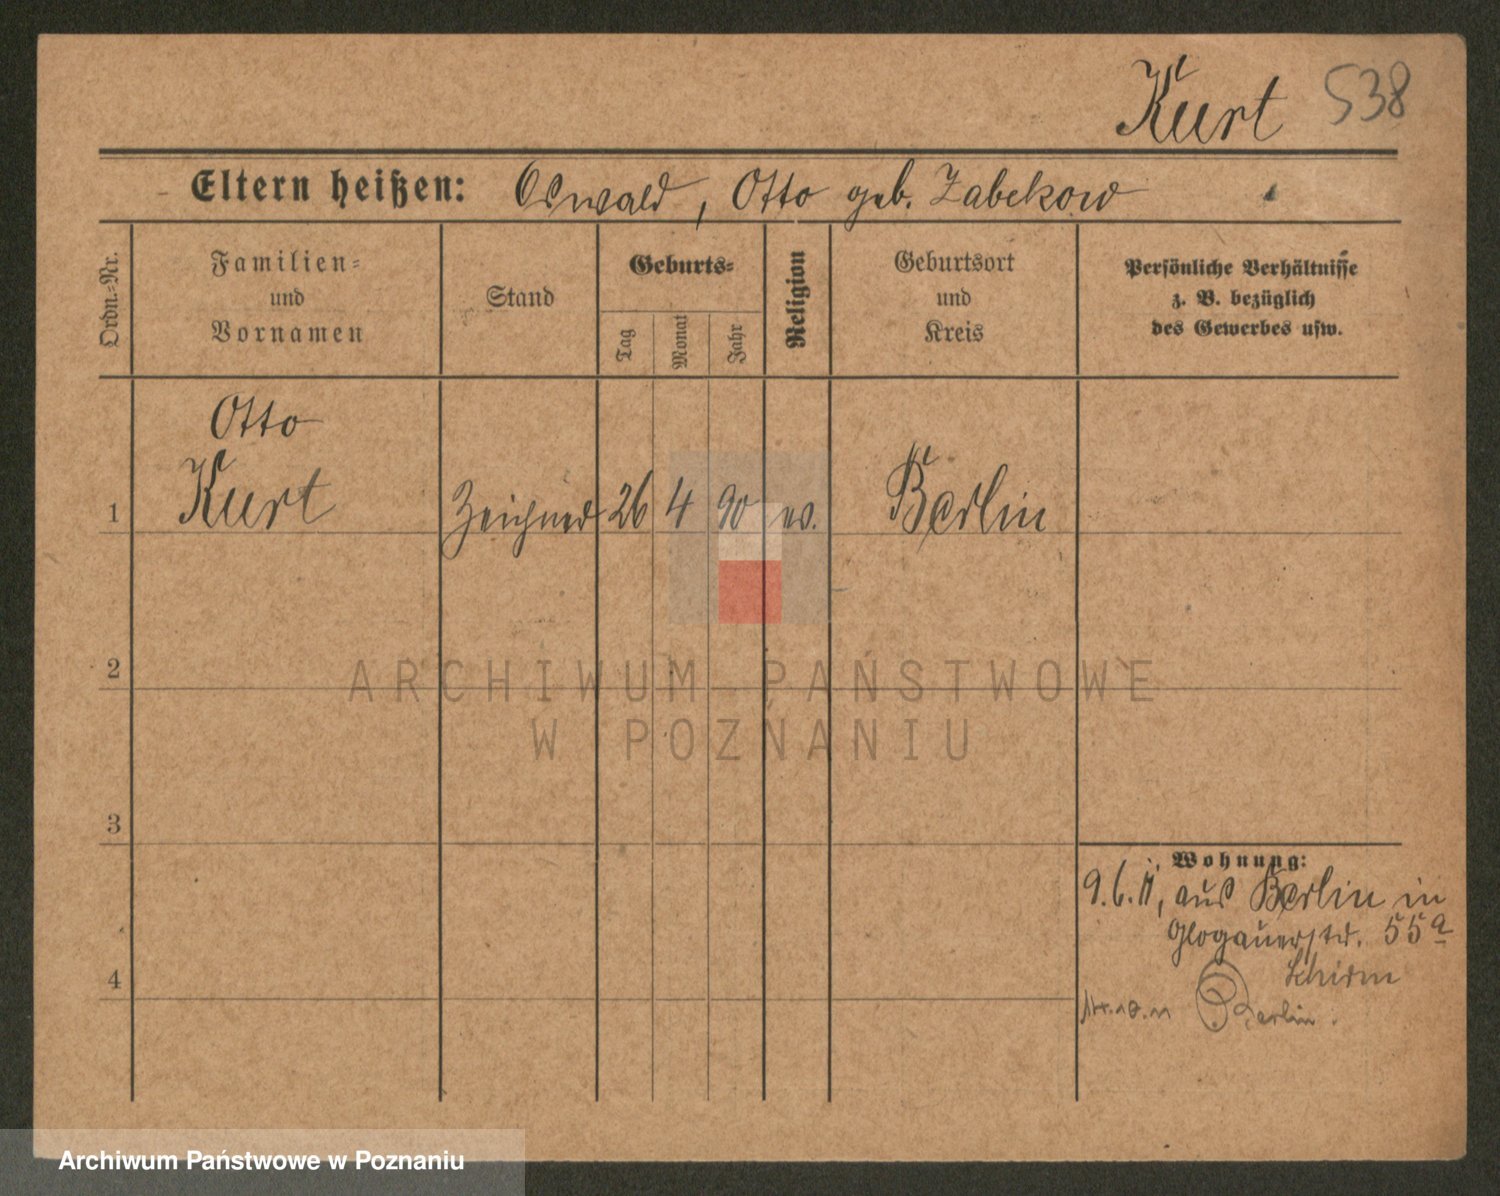 Kurt 538
Eltern heißen: Oswald, Otto geb. Zabekow
Ordn.-Nr.
Familien-
und
Vornamen
Stand
Geburts-
Tag
Monat
Jahr
Religion
Geburtsort
und
Kreis
Persönliche Verhältnisse
z. B. bezüglich
des Gewerbes usw.
Otto
1 Kurt Zeichner 26 4 90 ev. Berlin
2
3
4
Wohnung:
9.6.11, aus Berlin in
Glogauerstr. 55a
Schirm
Berlin.
ARCHIWUM PAŃSTWOWE
W POZNANIU
Archiwum Państwowe w Poznaniu